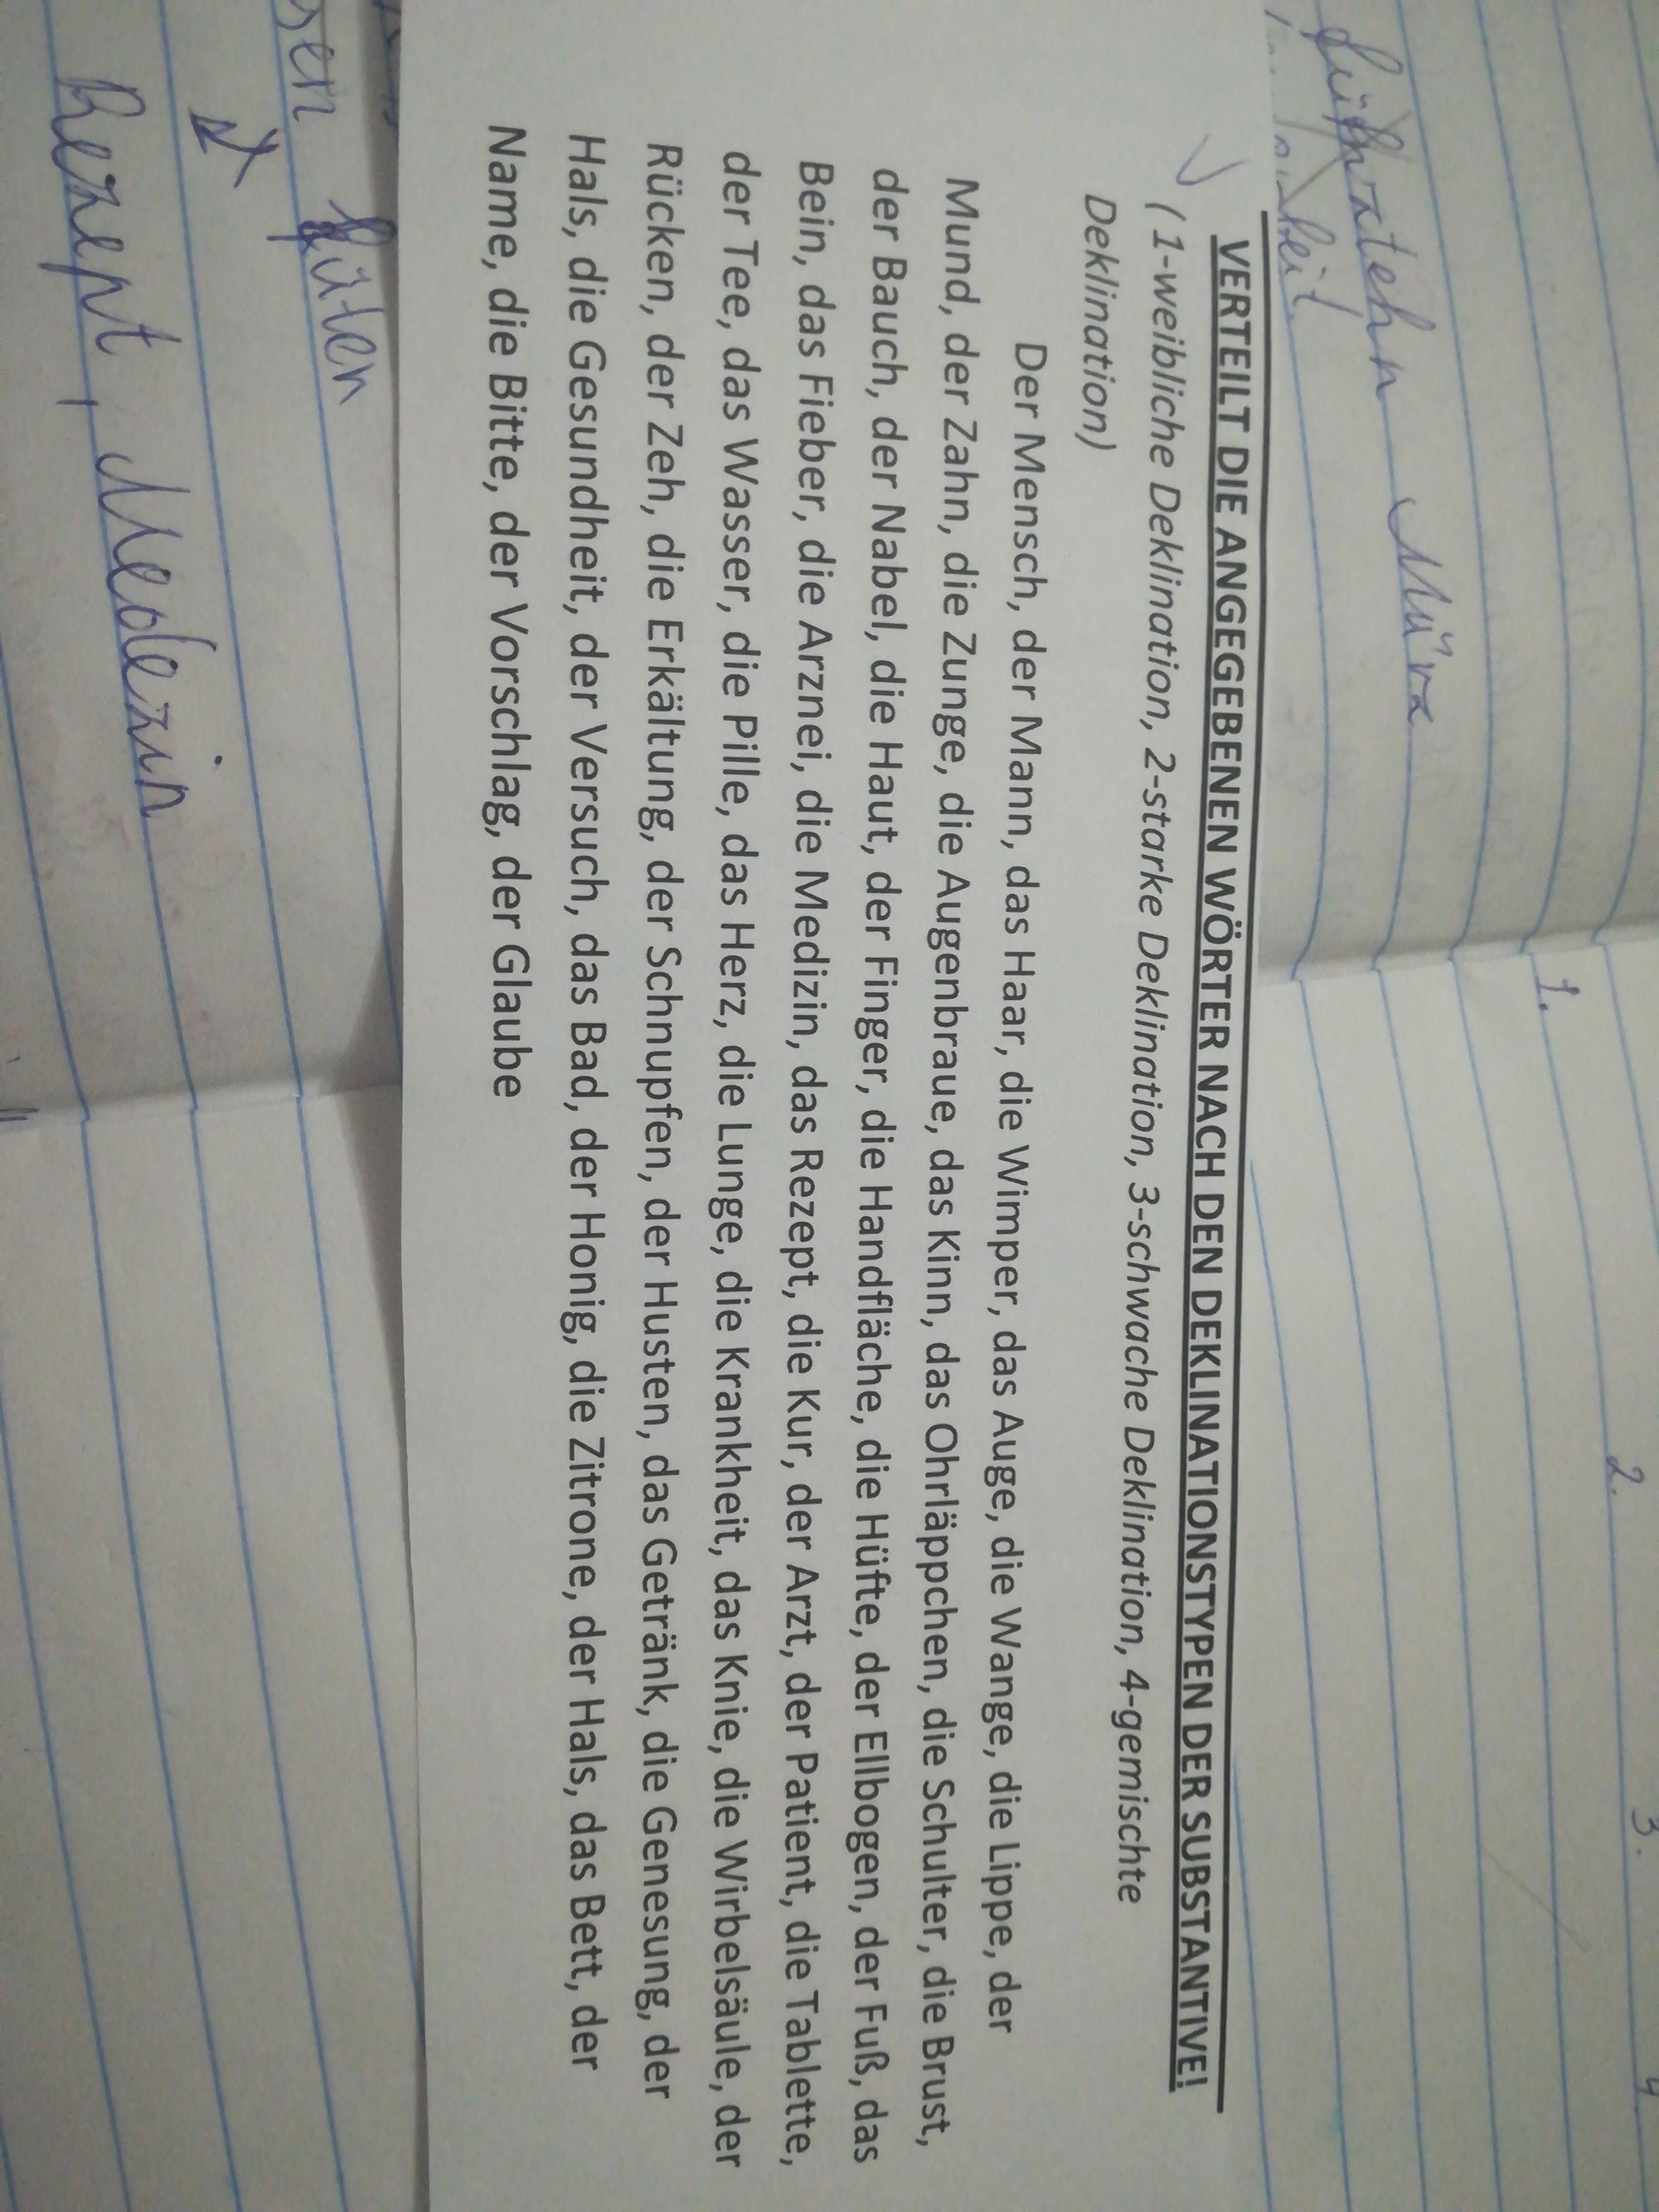 Mürz
1. 2. 3. 4.
VERTEILT DIE ANGEGEBENEN WÖRTER NACH DEN DEKLINATIONSTYPEN DER SUBSTANTIVE!
( 1-weibliche Deklination, 2-starke Deklination, 3-schwache Deklination, 4-gemischte
Deklination)
Der Mensch, der Mann, das Haar, die Wimper, das Auge, die Wange, die Lippe, der
Mund, der Zahn, die Zunge, die Augenbraue, das Kinn, das Ohrläppchen, die Schulter, die Brust,
der Bauch, der Nabel, die Haut, der Finger, die Handfläche, die Hüfte, der Ellbogen, der Fuß, das
Bein, das Fieber, die Arznei, die Medizin, das Rezept, die Kur, der Arzt, der Patient, die Tablette,
der Tee, das Wasser, die Pille, das Herz, die Lunge, die Krankheit, das Knie, die Wirbelsäule, der
Rücken, der Zeh, die Erkältung, der Schnupfen, der Husten, das Getränk, die Genesung, der
Hals, die Gesundheit, der Versuch, das Bad, der Honig, die Zitrone, der Hals, das Bett, der
Name, die Bitte, der Vorschlag, der Glaube
Rezept, Medezin